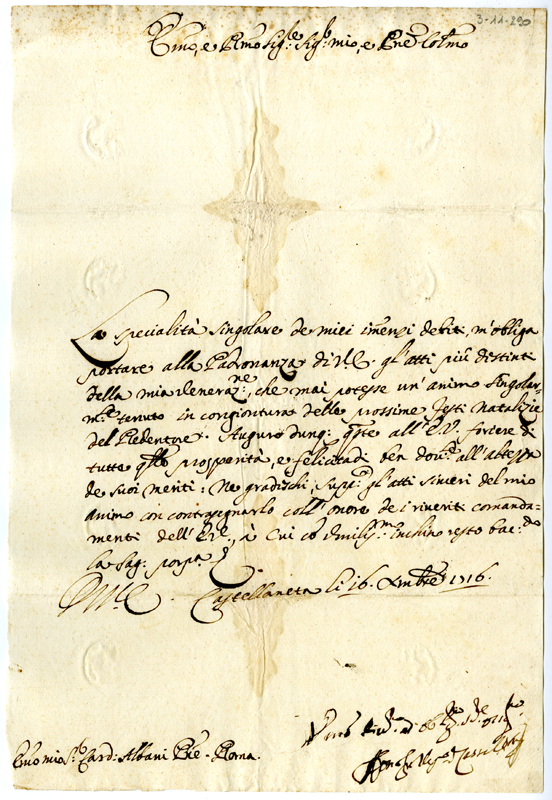 3-11-290
Em̃o, e Rm̃o Sig.re Sig.r mio, e Pne Colmo
La specialità singolare de miei im̃ensi debiti, m'obliga
portare alla Padronanza di V.E. gl'atti più distinti
della mia Veneraz.ne, che mai potesse un'animo singolar-
m.te tenuto in congiontura delle prossime Festi Natalizie
del Redentore. Auguro dunq; q.ste all'E.V. foriere di
tutte q.lle prosperità, e felicità di ben dov.te all'altezza
de suoi meriti: Ne gradischi, sup.co gl'atti sinceri del mio
animo con contrasegnarlo coll'onore de i riveriti comanda-
menti dell'E.V., à cui co umiliss.mo inchino resto bac.do
la sag. porp.a
D.V.E. Castellaneta li 16. Xmbre 1716.
Em̃o mio S.re Card: Albani Pne - Roma.